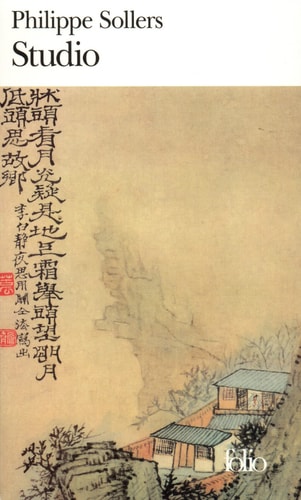 Philippe Sollers
Studio
牀頭看月光疑是地上霜舉頭望朙月
低頭思故鄉
李白靜夜思
folio